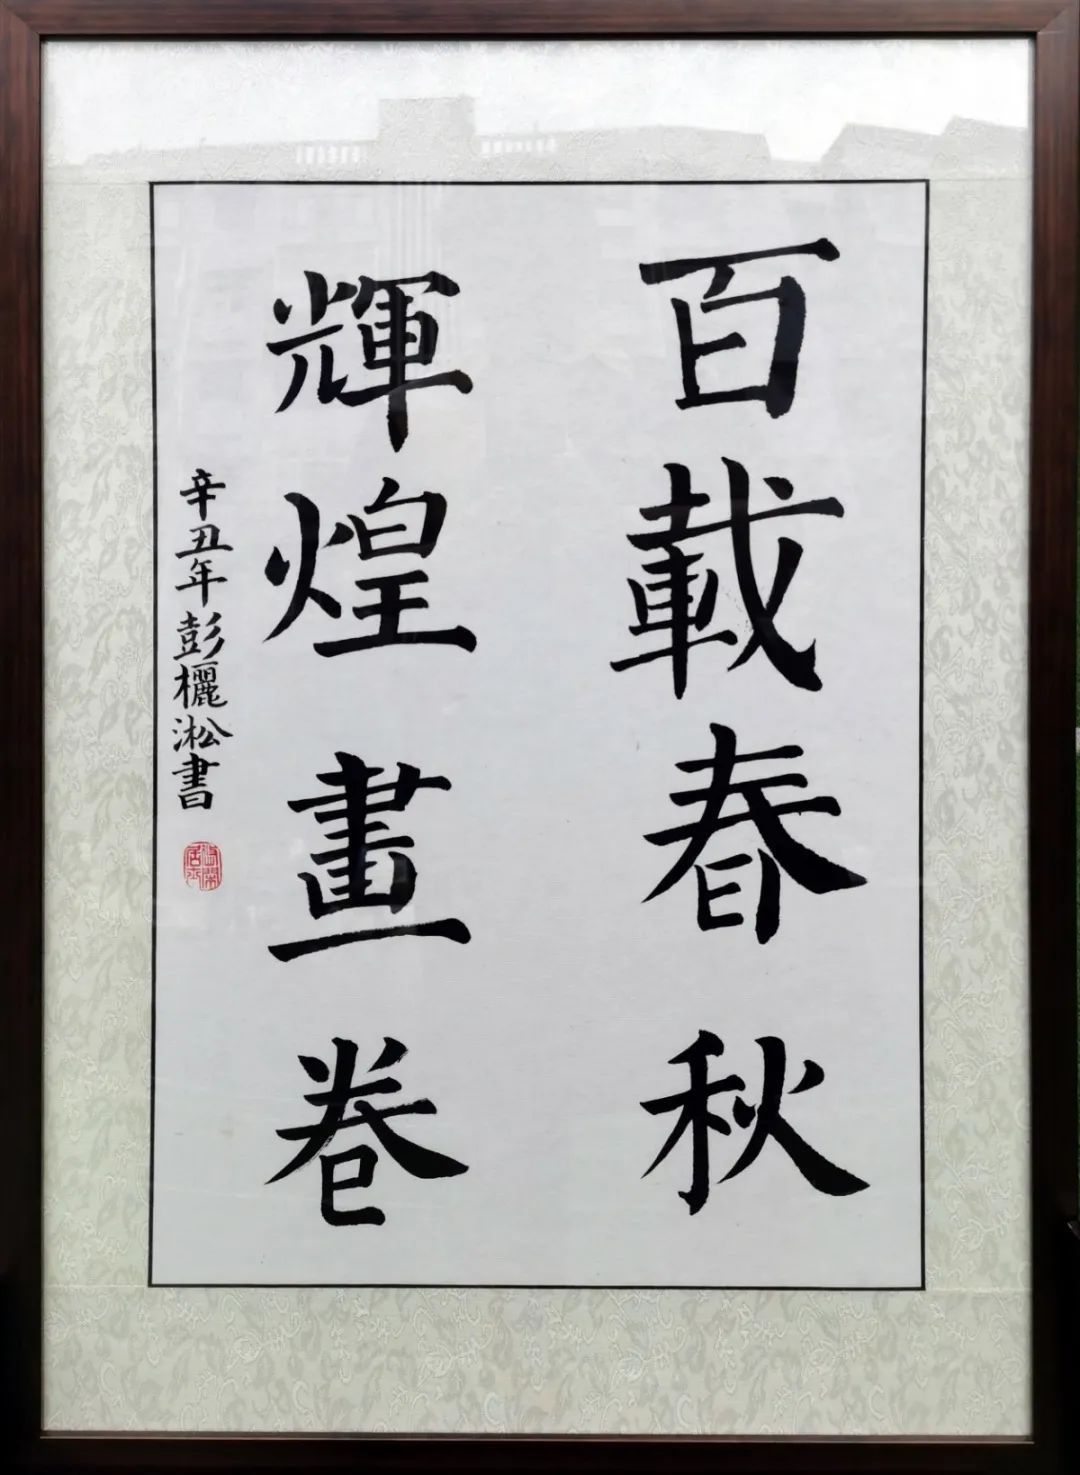 百載春秋
輝煌畫卷
辛丑年彭欐淞書